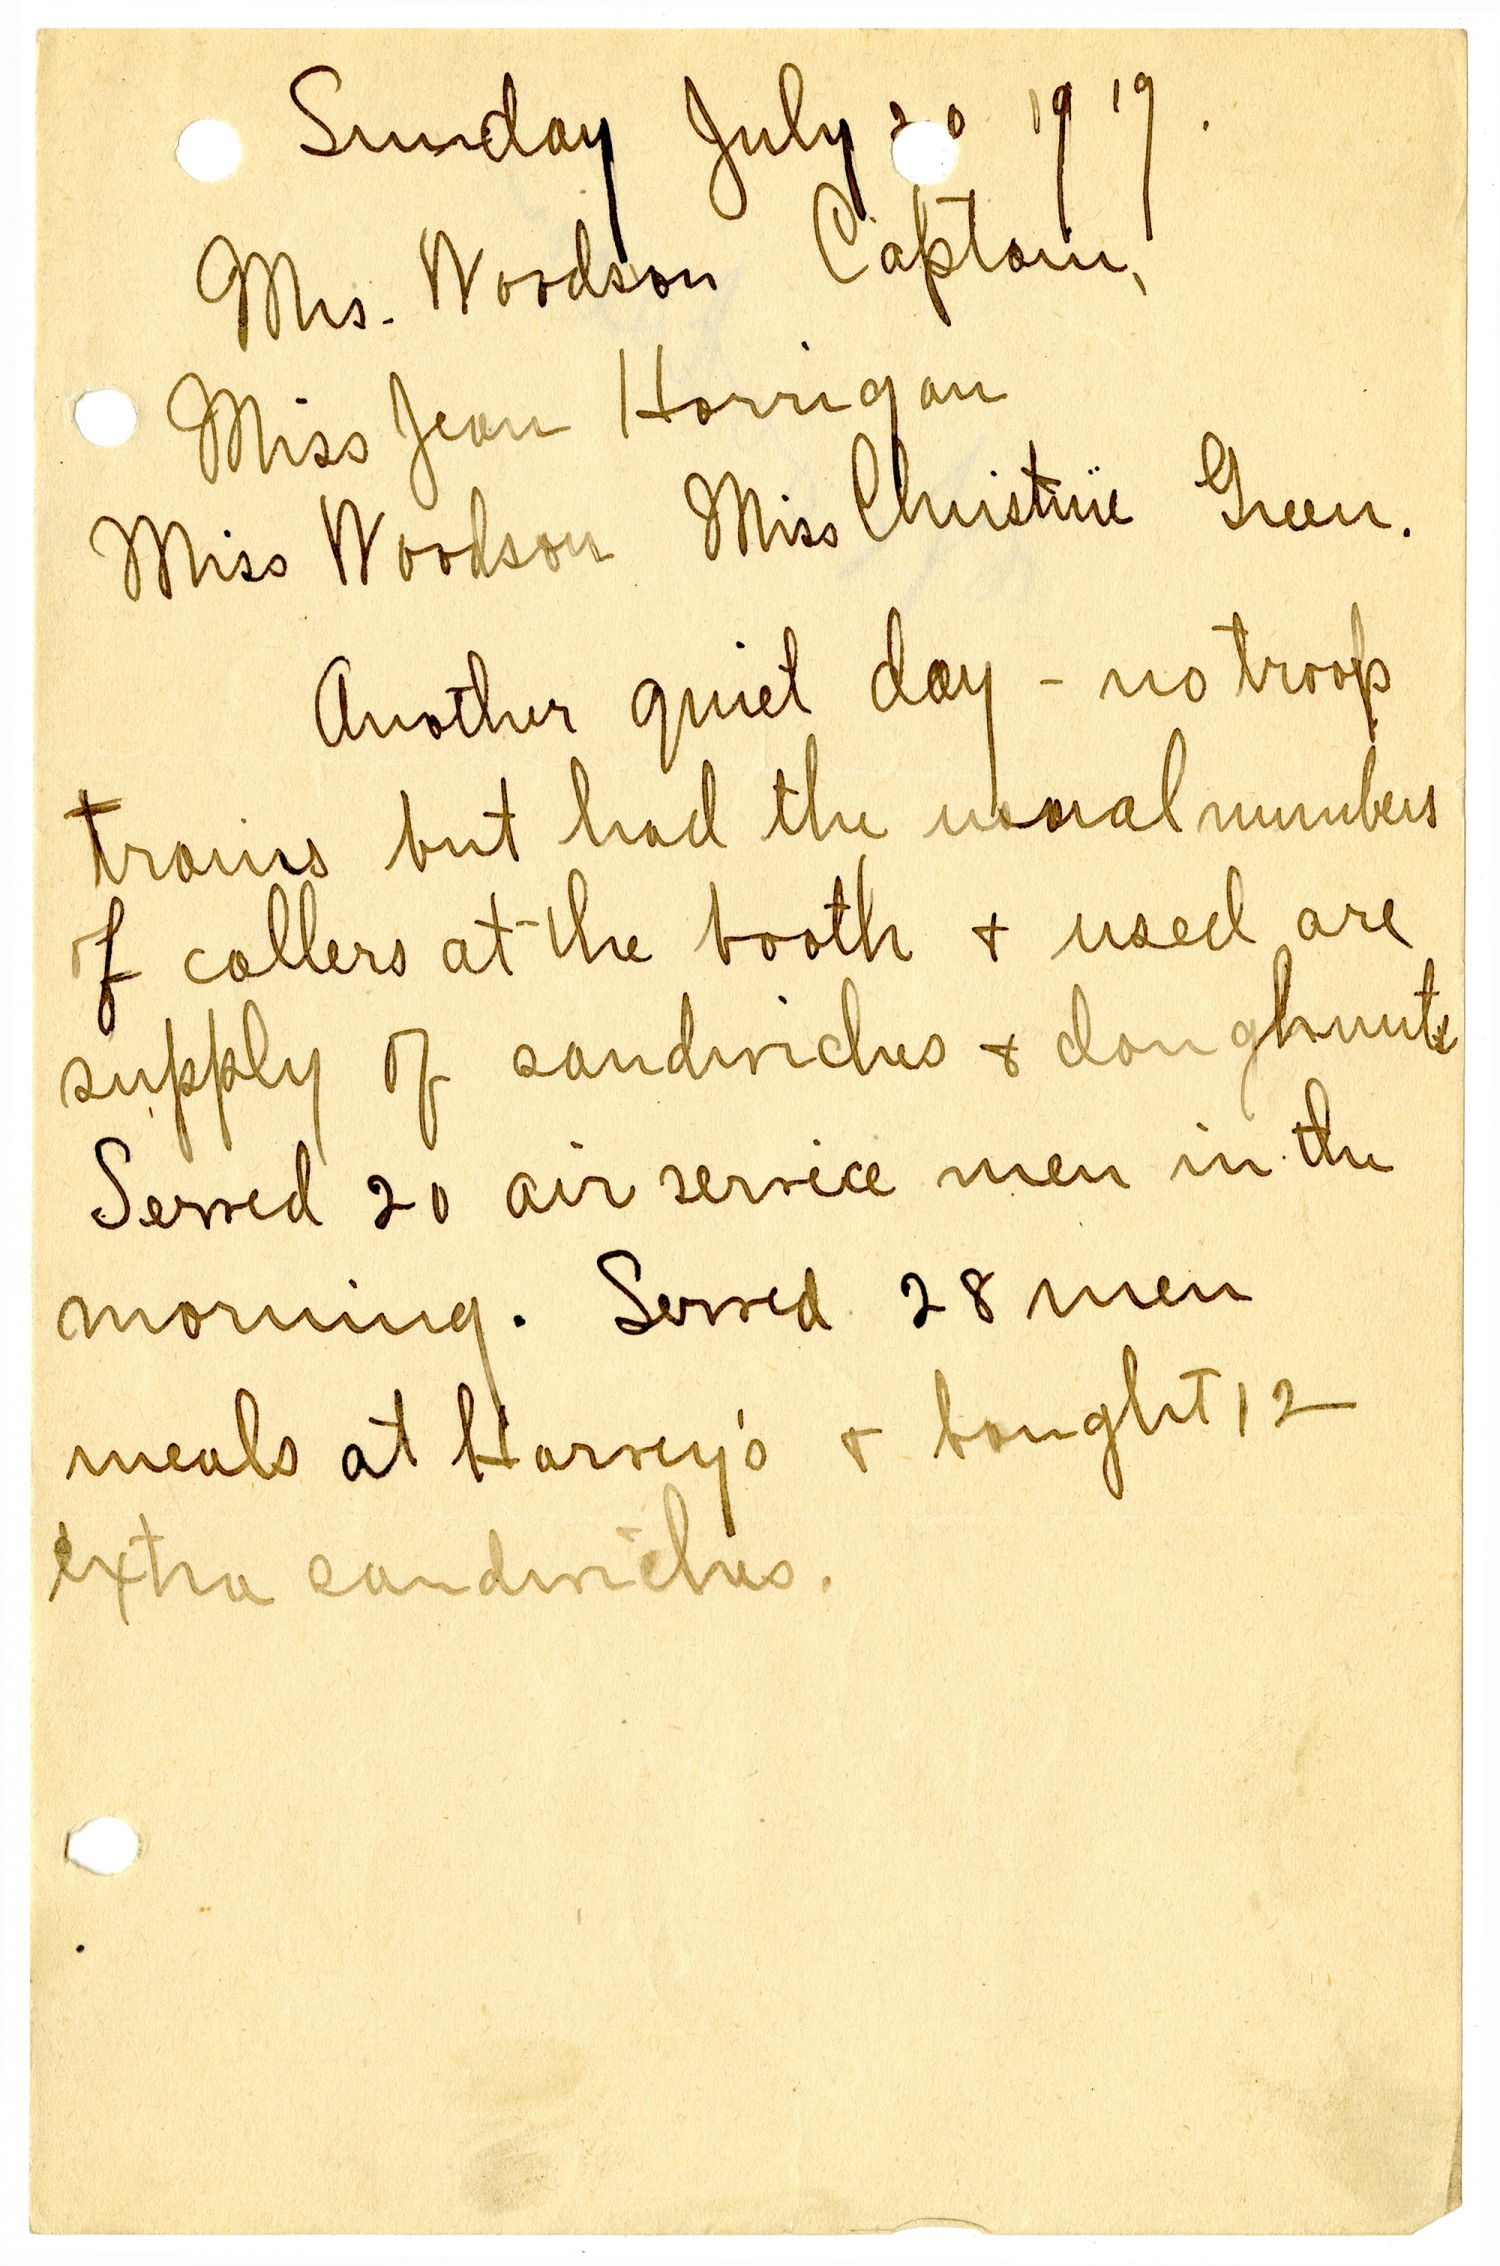 Sunday July 20 1919.
Mrs. Woodson Captain,
Miss Jean Horrigan
Miss Woodson Miss Christine Green.
Another quiet day - no troop
trains but had the usual numbers
of callers at the booth & used are
supply of sandwiches & doughnuts
Served 20 air service men in the
morning. Served 28 men
meals at Harvey's & bought 12
extra sandwiches.